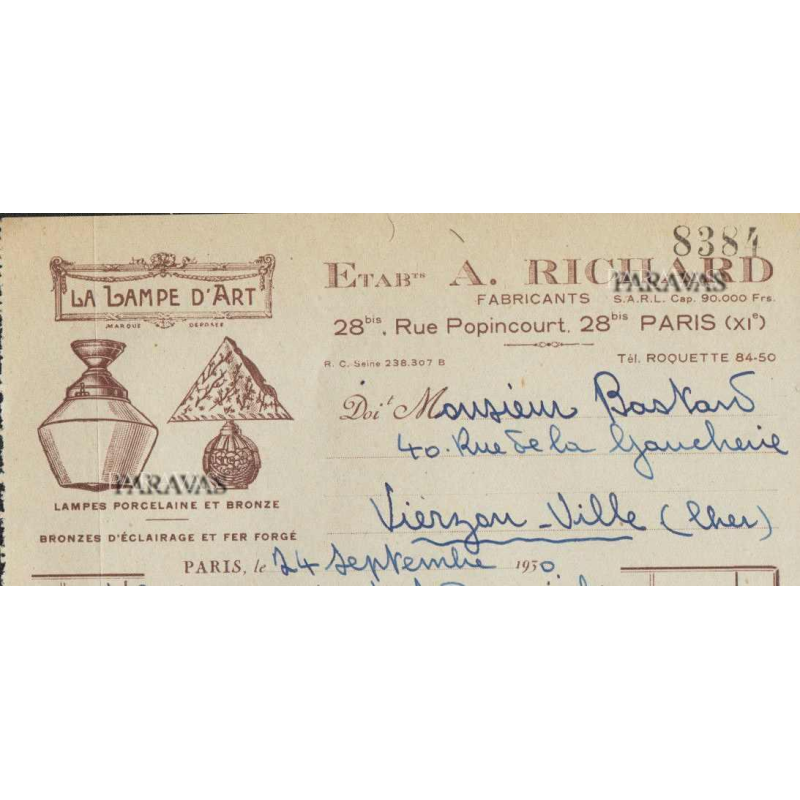 8384
LA LAMPE D'ART
MARQUE DÉPOSÉE
ETAB^TS A. RICHARD
PARAVAS
FABRICANTS S.A.R.L. Cap. 90.000 Frs.
28^bis, Rue Popincourt, 28^bis PARIS (XI^e)
R. C. Seine 238.307 B
Tél. ROQUETTE 84-50
Doit Monsieur Bastard
40. Rue de la Gaucherie
Vierzon-Ville (Cher)
PARAVAS
LAMPES PORCELAINE ET BRONZE
BRONZES D'ÉCLAIRAGE ET FER FORGÉ
PARIS, le 24 septembre 1930